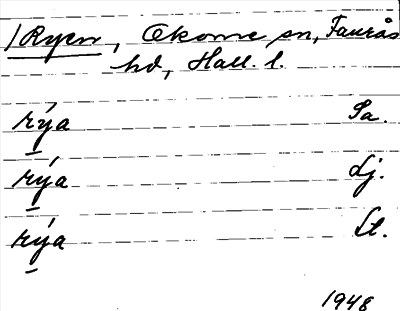 /Ryen, Okome sn, Faurås
hd, Hall. l.
rýa Sa.
rýa Lj.
rýa Lt.
1948